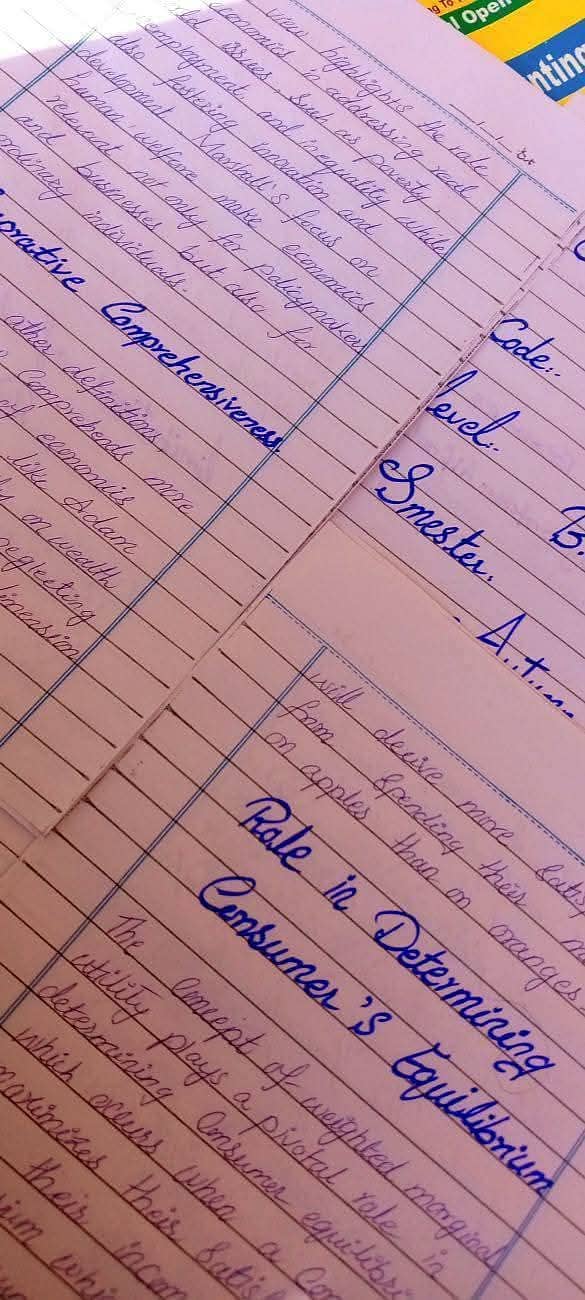 highlights the role
economics in addressing real
issues, such as poverty
unemployment and inequality while
also fostering innovation and
development Marshall's focus on
human welfare make economics
relevant not only for policymakers
and businesses but also for
ordinary individuals.
Comprehensiveness
other definitions
comprehends more
of economics
like Adam
on wealth
neglecting
dimension
l Open
nting
Code:.
Level:.
Smester.
B.
will derive more
from spending their
on apples than on oranges
Role in Determining
Consumer's Equilibrium
The concept of weighted marginal
utility plays a pivotal role in
determining Consumer
which occurs when a
their
their